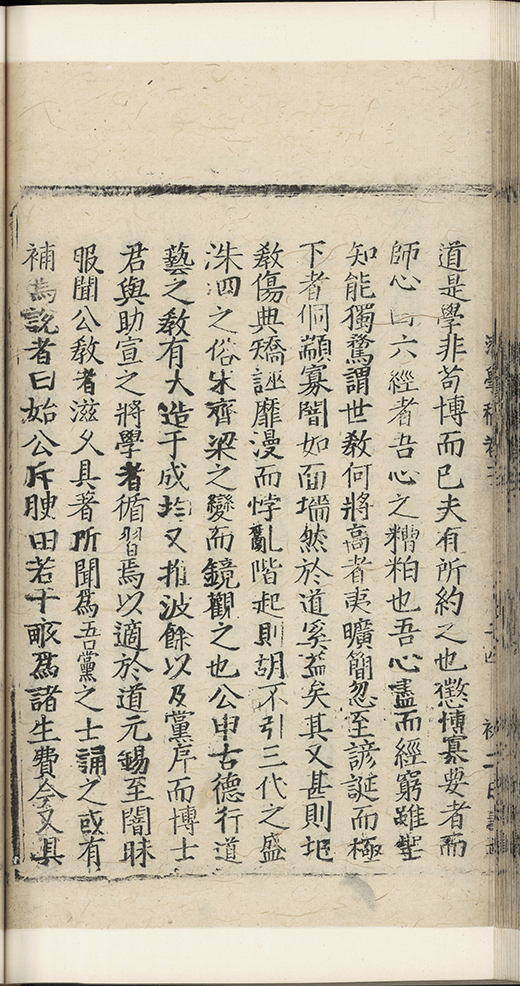 道是學非苟博而已夫有所約之也懲博寡要者而
師心曰六經者吾心之糟粕也吾心盡而經窮雖聖
知能獨驁謂世教何將高者夷曠簡忽至諺誕而極
下者侗顓寡闇如面墻然於道奚益矣其又甚則圯
敎傷典矯誣靡漫而悖亂階起則胡不引三代之盛
洙泗之俗宋齊梁之變而鏡觀之也公申古德行道
藝之敎有大造于成均又推波餘以及黨序而博士
君與助宣之將學者循習焉以適於道元錫至闇昧
服聞公敎者滋久具著所聞爲吾黨之士誦之或有
補焉說者曰始公斥腴田若干畝爲諸生費今又具